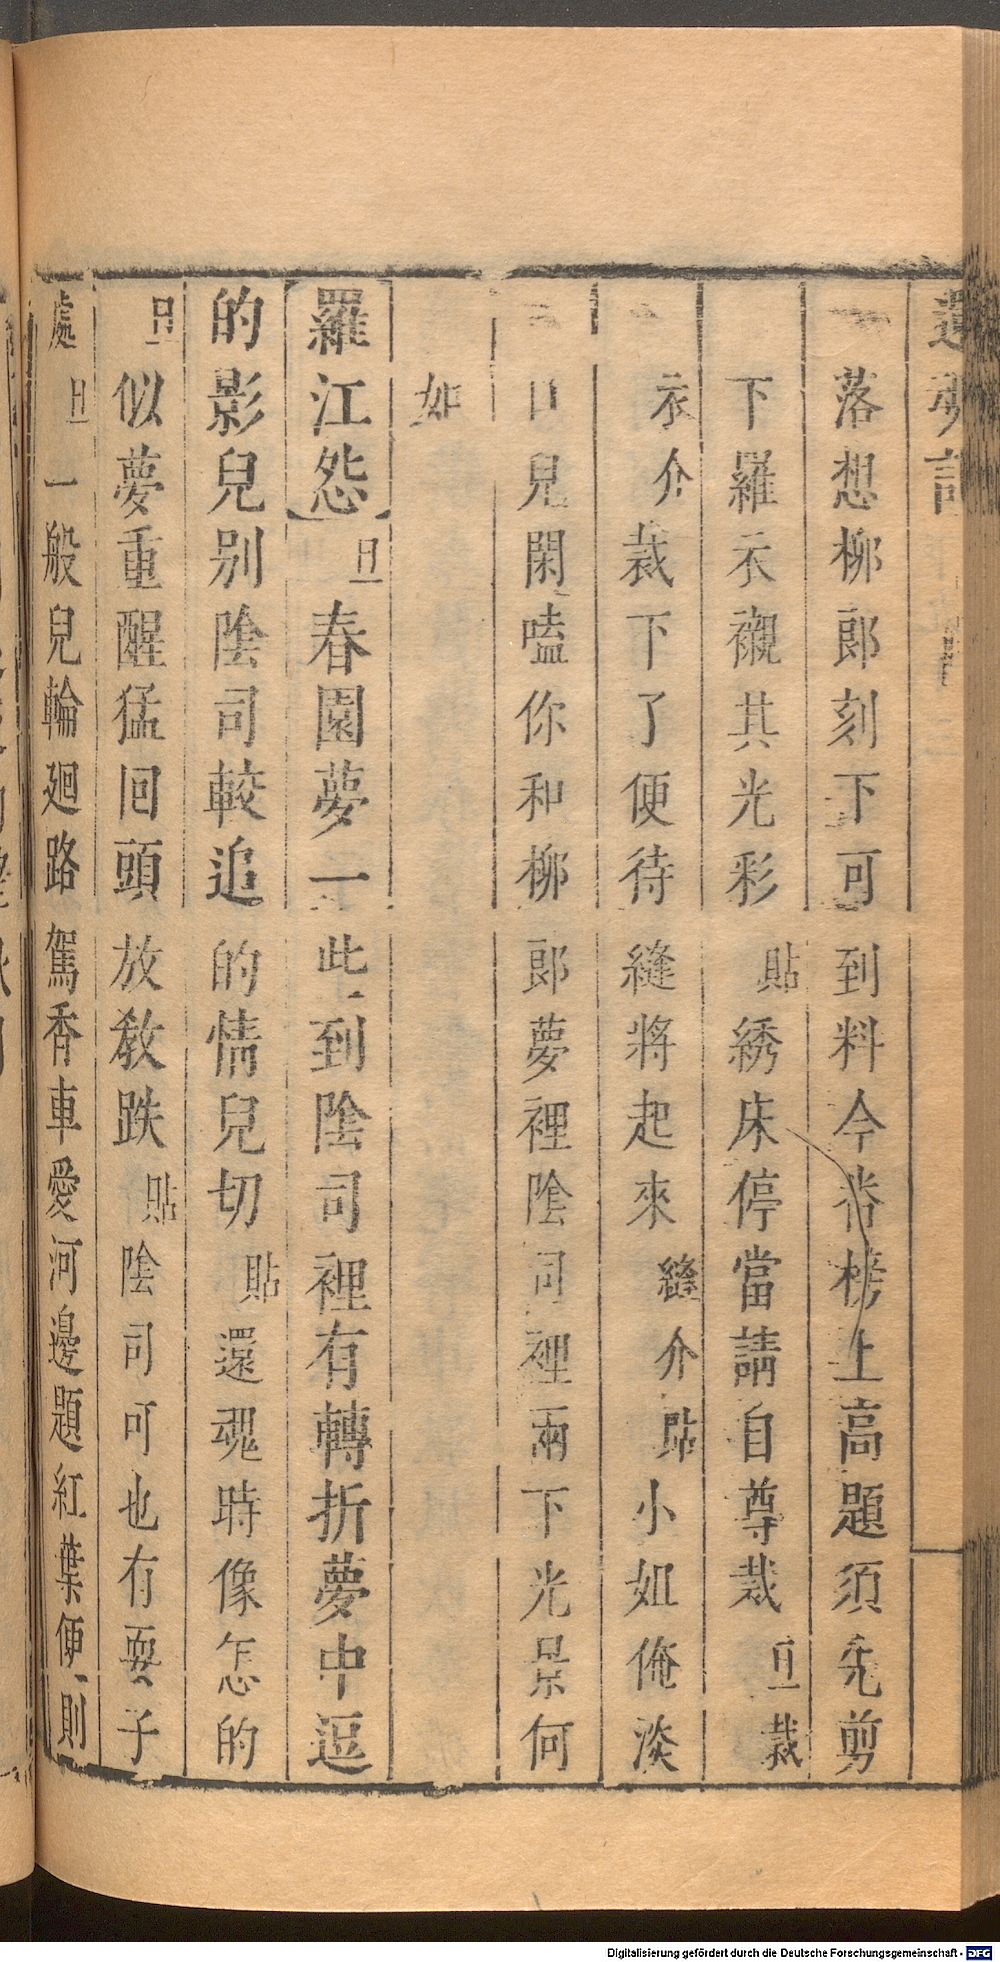 落想柳郎刻下可到料今番榜上高題須先剪
下羅衣襯其光彩貼綉床停當請自尊裁旦裁
衣介裁下了便待縫將起來縫介貼小姐俺淡
口兒閑嗑你和柳郎夢裡陰司裡兩下光景何
如
羅江怨旦春園夢一此到陰司裡有轉折夢中逗
的影兒別陰司較追的情兒切貼還魂時像怎的
旦似夢重醒猛回頭放教跌貼陰司可也有耍子
處旦一般兒輪廻路駕香車愛河邊題紅葉便則
Digitalisierung gefördert durch die Deutsche Forschungsgemeinschaft - DFG